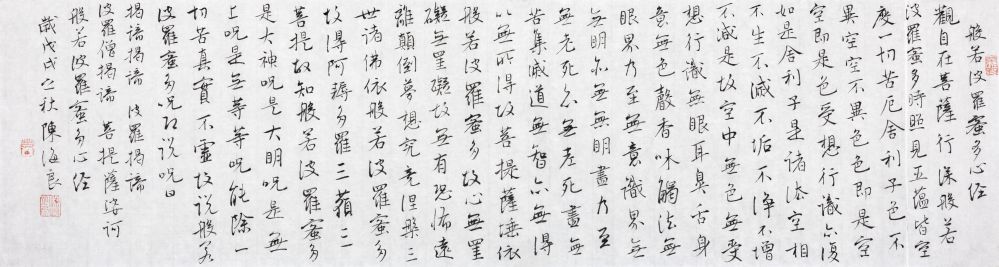 般若波羅蜜多心經
觀自在菩薩行深般若
波羅蜜多時照見五蘊皆空
度一切苦厄舍利子色不
異空空不異色色即是空
空即是色受想行識亦復
如是舍利子是諸法空相
不生不滅不垢不淨不增
不減是故空中無色無受
想行識無眼耳鼻舌身
意無色聲香味觸法無
眼界乃至無意識界無
無明亦無無明盡乃至
無老死亦無老死盡無
苦集滅道無智亦無得
以無所得故菩提薩埵依
般若波羅蜜多故心無罣
礙無罣礙故無有恐怖遠
離顛倒夢想究竟涅槃三
世諸佛依般若波羅蜜多
故得阿耨多羅三藐三
菩提故知般若波羅蜜多
是大神呪是大明呪是無
上呪是無等等呪能除一
切苦真實不虛故說般若
波羅蜜多呪即說呪曰
揭諦揭諦 波羅揭諦
波羅僧揭諦 菩提薩婆訶
般若波羅蜜多心經
歲戊戌之秋陳海良